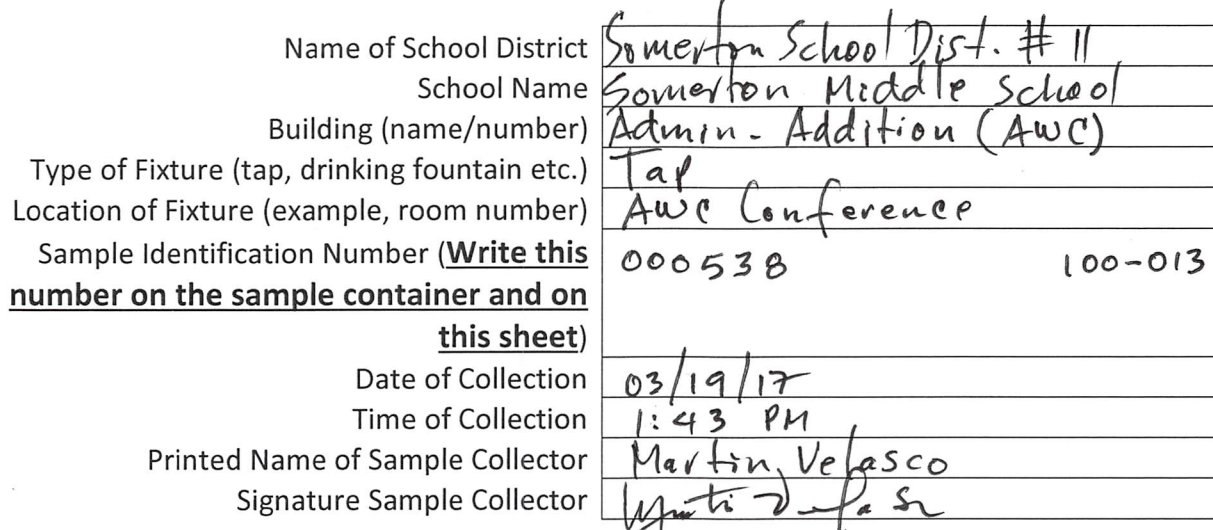 Name of School District Somerton School Dist. # 11
School Name Somerton Middle School
Building (name/number) Admin - Addition (AWC)
Type of Fixture (tap, drinking fountain etc.) Tap
Location of Fixture (example, room number) AWC Conference
Sample Identification Number (Write this 000538 100-013
number on the sample container and on
this sheet)
Date of Collection 03/19/17
Time of Collection 1:43 PM
Printed Name of Sample Collector Martin Velasco
Signature Sample Collector